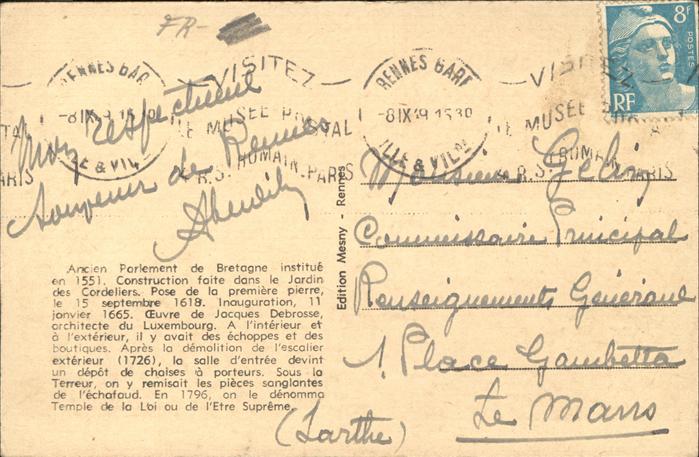 FR-
8f
POSTES
RF
RENNES GARE
-8 IX 49 15 30
ILLE & VILNE
VISITEZ
LE MUSÉE POSTAL
4 R. ST ROMAIN-PARIS
RENNES GARE
-8 IX 49 15 30
ILLE & VILNE
VISITEZ
LE MUSÉE
R. ST ROMAIN
PARIS
Mon respectueux
souvenir de Rennes
Ancien Parlement de Bretagne institué
en 1551. Construction faite dans le Jardin
des Cordeliers. Pose de la première pierre,
le 15 septembre 1618. Inauguration, 11
janvier 1665. Œuvre de Jacques Debrosse,
architecte du Luxembourg. A l'intérieur et
à l'extérieur, il y avait des échoppes et des
boutiques. Après la démolition de l'escalier
extérieur (1726), la salle d'entrée devint
un dépôt de chaises à porteurs. Sous la
Terreur, on y remisait les pièces sanglantes
de l'échafaud. En 1796, on le dénomma
Temple de la Loi ou de l'Etre Suprême.
Edition Mesny - Rennes
Monsieur Gélin
Commissaire Principal
Renseignements Généraux
1, Place Gambetta
Le Mans
(Sarthe)